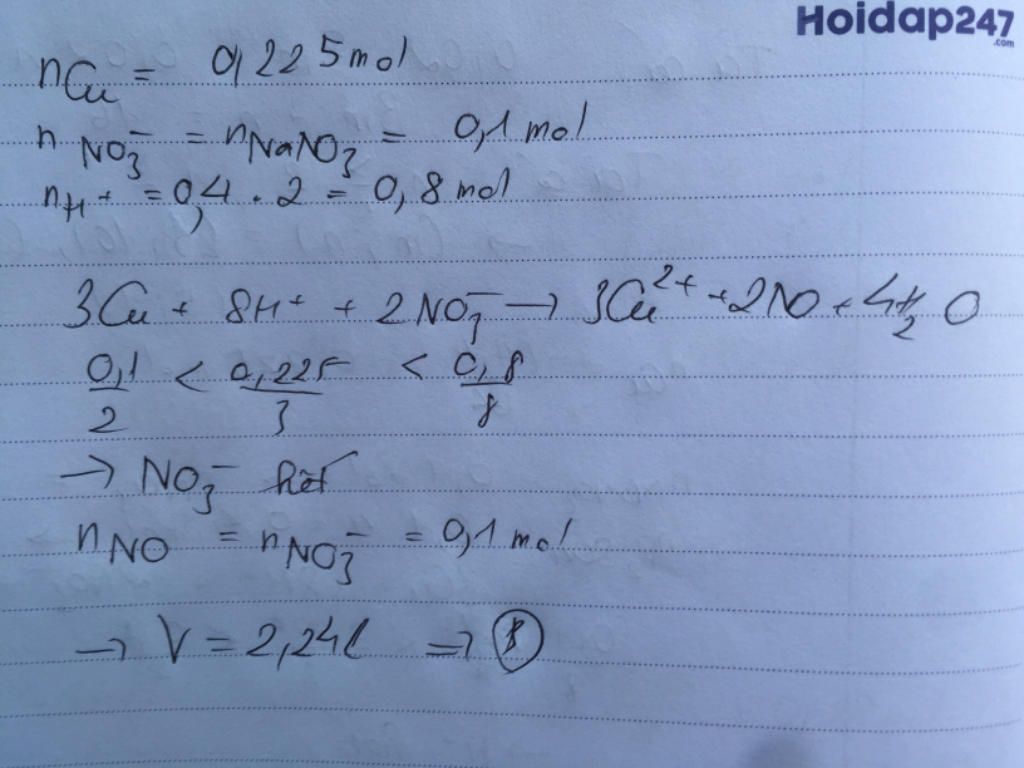 Hoidap247
.com
nCu = 0,225 mol
nNO3⁻ = nNaNO3 = 0,1 mol
nH⁺ = 0,4 . 2 = 0,8 mol
3Cu + 8H⁺ + 2NO3⁻ → 3Cu²⁺ + 2NO + 4H2O
0,1/2 < 0,225/3 < 0,8/8
→ NO3⁻ hết
nNO = nNO3⁻ = 0,1 mol
→ V = 2,24l ⇒ B